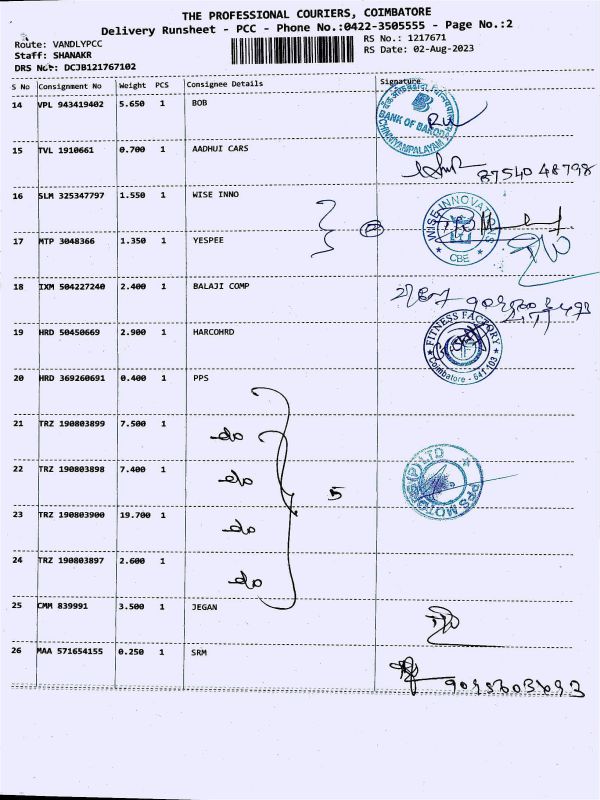 THE PROFESSIONAL COURIERS, COIMBATORE
Delivery Runsheet - PCC - Phone No.:0422-3505555 - Page No.:2
Route: VANDLYPCC
RS No.: 1217671
Staff: SHANAKR
RS Date: 02-Aug-2023
DRS No: DCJB121767102
S No Consignment No Weight PCS Consignee Details Signature
14 VPL 943419402 5.650 1 BOB
BANK OF BARODA
CHINNIYAMPALAYAM
15 TVL 1910661 0.700 1 AADHUI CARS
87540 48798
16 SLM 325347797 1.550 1 WISE INNO
WISE INNOVATIONS
CBE
17 MTP 3048366 1.350 1 YESPEE
18 IXM 504227240 2.400 1 BALAJI COMP
19 HRD 50450669 2.900 1 HARCOHRD
FITNESS FACTORY
Coimbatore - 641 103
20 HRD 369260691 0.400 1 PPS
21 TRZ 190803899 7.500 1 do
22 TRZ 190803898 7.400 1 do
5
PPS MOTORS (P) LTD
23 TRZ 190803900 19.700 1 do
24 TRZ 190803897 2.600 1 do
25 CMM 839991 3.500 1 JEGAN
26 MAA 571654155 0.250 1 SRM